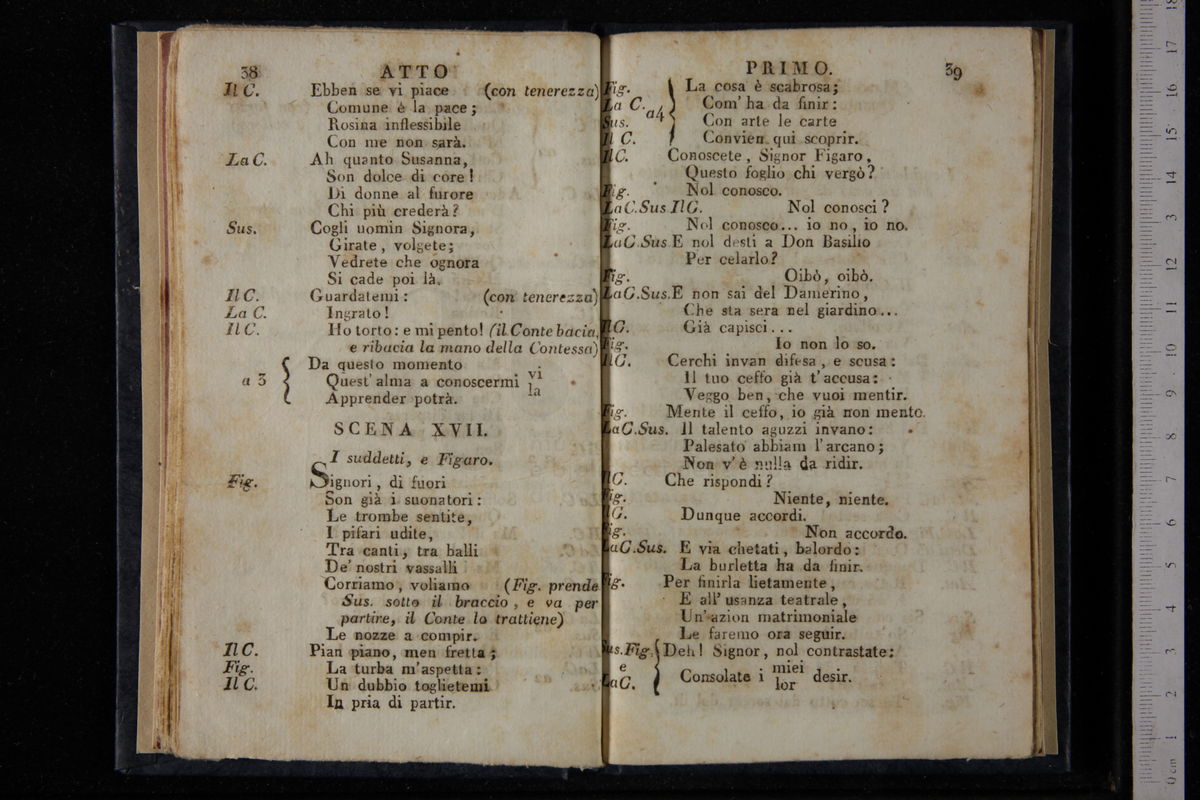 38 ATTO
Il C. Ebben se vi piace (con tenerezza)
Comune è la pace;
Rosina inflessibile
Con me non sarà.
La C. Ah quanto Susanna,
Son dolce di core!
Di donne al furore
Chi più crederà?
Sus. Cogli uomin Signora,
Girate, volgete;
Vedrete che ognora
Si cade poi là.
Il C. Guardatemi: (con tenerezza)
La C. Ingrato!
Il C. Ho torto: e mi pento! (il Conte bacia,
e ribacia la mano della Contessa)
Da questo momento
a 3 Quest' alma a conoscermi vi
la
Apprender potrà.
SCENA XVII.
I suddetti, e Figaro.
Fig. Signori, di fuori
Son già i suonatori:
Le trombe sentite,
I pifari udite,
Tra canti, tra balli
De' nostri vassalli
Corriamo, voliamo (Fig. prende
Sus. sotto il braccio, e va per
partire, il Conte lo trattiene)
Le nozze a compir.
Il C. Pian piano, men fretta;
Fig. La turba m'aspetta:
Il C. Un dubbio toglietemi
In pria di partir.
PRIMO. 39
Fig. La cosa è scabrosa;
La C. a4 Com' ha da finir:
Sus. Con arte le carte
Il C. Convien qui scoprir.
Il C. Conoscete, Signor Figaro,
Questo foglio chi vergò?
Fig. Nol conosco.
La C. Sus Il C. Nol conosci?
Fig. Nol conosco... io no, io no.
La C. Sus E nol desti a Don Basilio
Per celarlo?
Fig. Oibò, oibò.
La C. Sus. E non sai del Damerino,
Che sta sera nel giardino...
Il C. Già capisci...
Fig. Io non lo so.
Il C. Cerchi invan difesa, e scusa:
Il tuo ceffo già t'accusa:
Veggo ben, che vuoi mentir.
Fig. Mente il ceffo, io già non mento.
La C. Sus. Il talento aguzzi invano:
Palesato abbiam l'arcano;
Non v'è nulla da ridir.
Il C. Che rispondi?
Fig. Niente, niente.
Il C. Dunque accordi.
Fig. Non accordo.
La C. Sus. E via chetati, balordo:
La burletta ha da finir.
Fig. Per finirla lietamente,
E all' usanza teatrale,
Un' azion matrimoniale
Le faremo ora seguir.
Sus. Fig. Deh! Signor, nol contrastate:
e Consolate i miei desir.
La C. lor